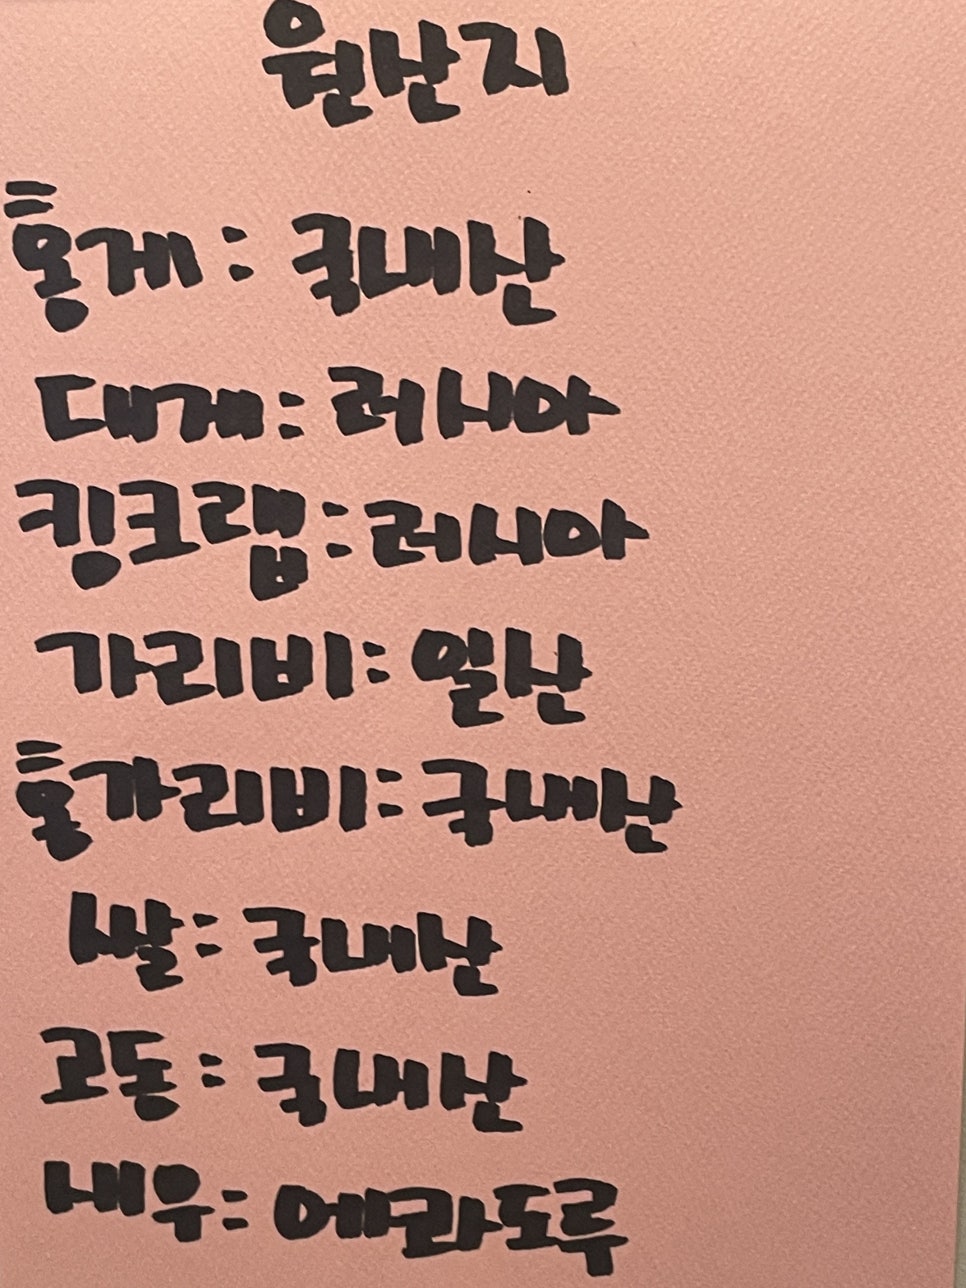 원산지
홍게: 국내산
대게: 러시아
킹크랩: 러시아
가리비: 일산
홍가리비: 국내산
쌀: 국내산
고동: 국내산
새우: 에콰도루